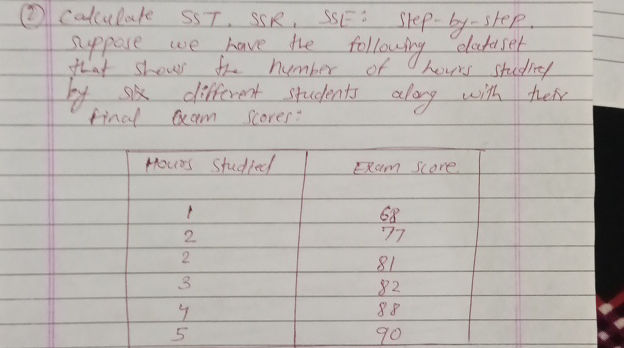 ② Calculate SST, SSR, SSE: Step-by-step.
suppose we have the following dataset
that shows the number of hours studied
by six different students along with their
final Exam scores:
Hours Studied Exam score
1 68
2 77
2 81
3 82
4 88
5 90